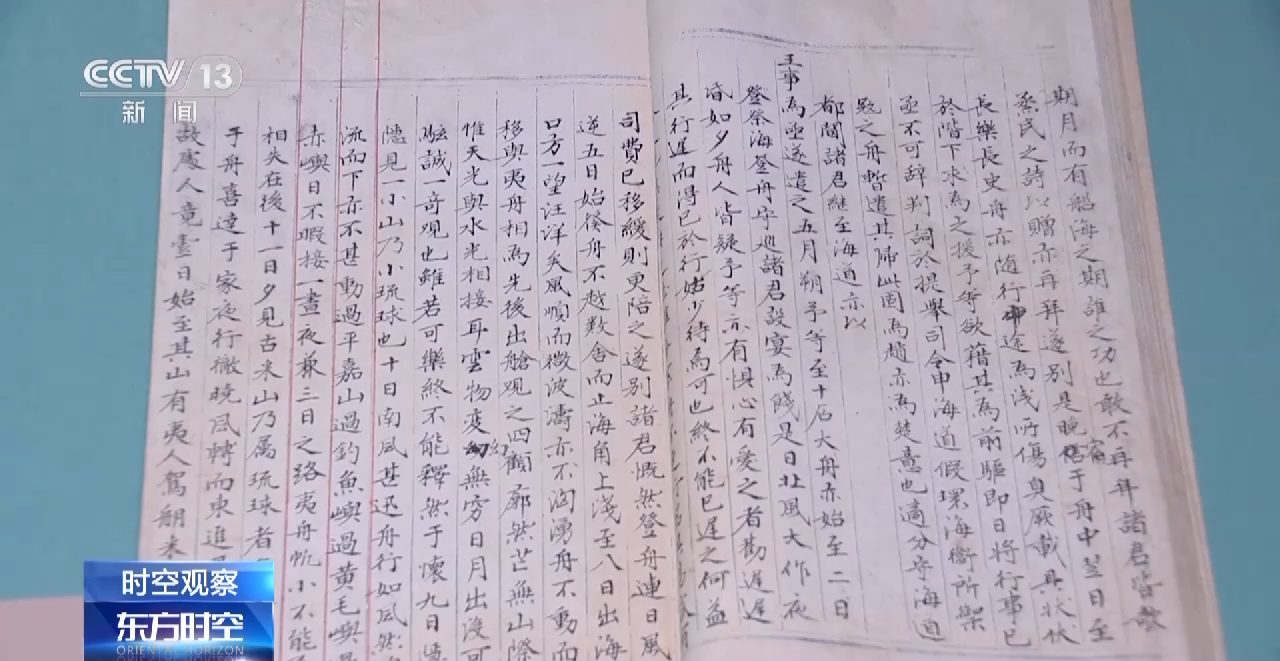 CCTV 13
新闻
期月而有船海之期誰之功也敢不再拜諸君皆歌
烝民之詩以贈亦再拜遂別是晚宿于舟中翌日至
長樂長史舟亦随行中途為浅所傷臭厥載具状伏
於階下求為之援予等欲藉其為前驅即日將行事已
亟不可辞判詞於提舉司令申海道假環海衛所架
舩之舟暫遣其歸此固為趙亦為楚意也適分守海道
都閫諸君継至海道亦以
王事為亟遂遣之五月朔予等至十石大舟亦始至二日
登祭海登舟守巡諸君設宴為餞是日北風大作夜
昏如夕舟人皆疑予等亦有惧心有愛之者勸遅遅
其行遅而得已於行姑少待為可也終不能已遅之何益
司費已移緩則更陪之遂别諸君慨然登舟連日風
逆五日始發舟不越数舍而止海角上淺至八日出海
口方一望汪洋矣風順而微波濤亦不洶湧舟不動而
移與夷舟相為先後出艙观之四顧廓然茫無山際
惟天光與水光相接耳雲物变幻無穷日月出没可
駭誠一奇观也雖若可樂終不能釋然于懷九日隐
隐見一小山乃小琉球也十日南風甚迅舟行如風然
流而下亦不甚動過平嘉山過釣魚嶼過黄毛嶼過
赤嶼目不暇接一晝夜兼三日之路夷舟帆小不能
相失在後十一日夕見古米山乃属琉球者
于舟喜達于家夜行徹曉風轉而東進
故處人竟 日始至其山有夷人駕船来
时空观察
东方时空
ORIENTAL HORIZON